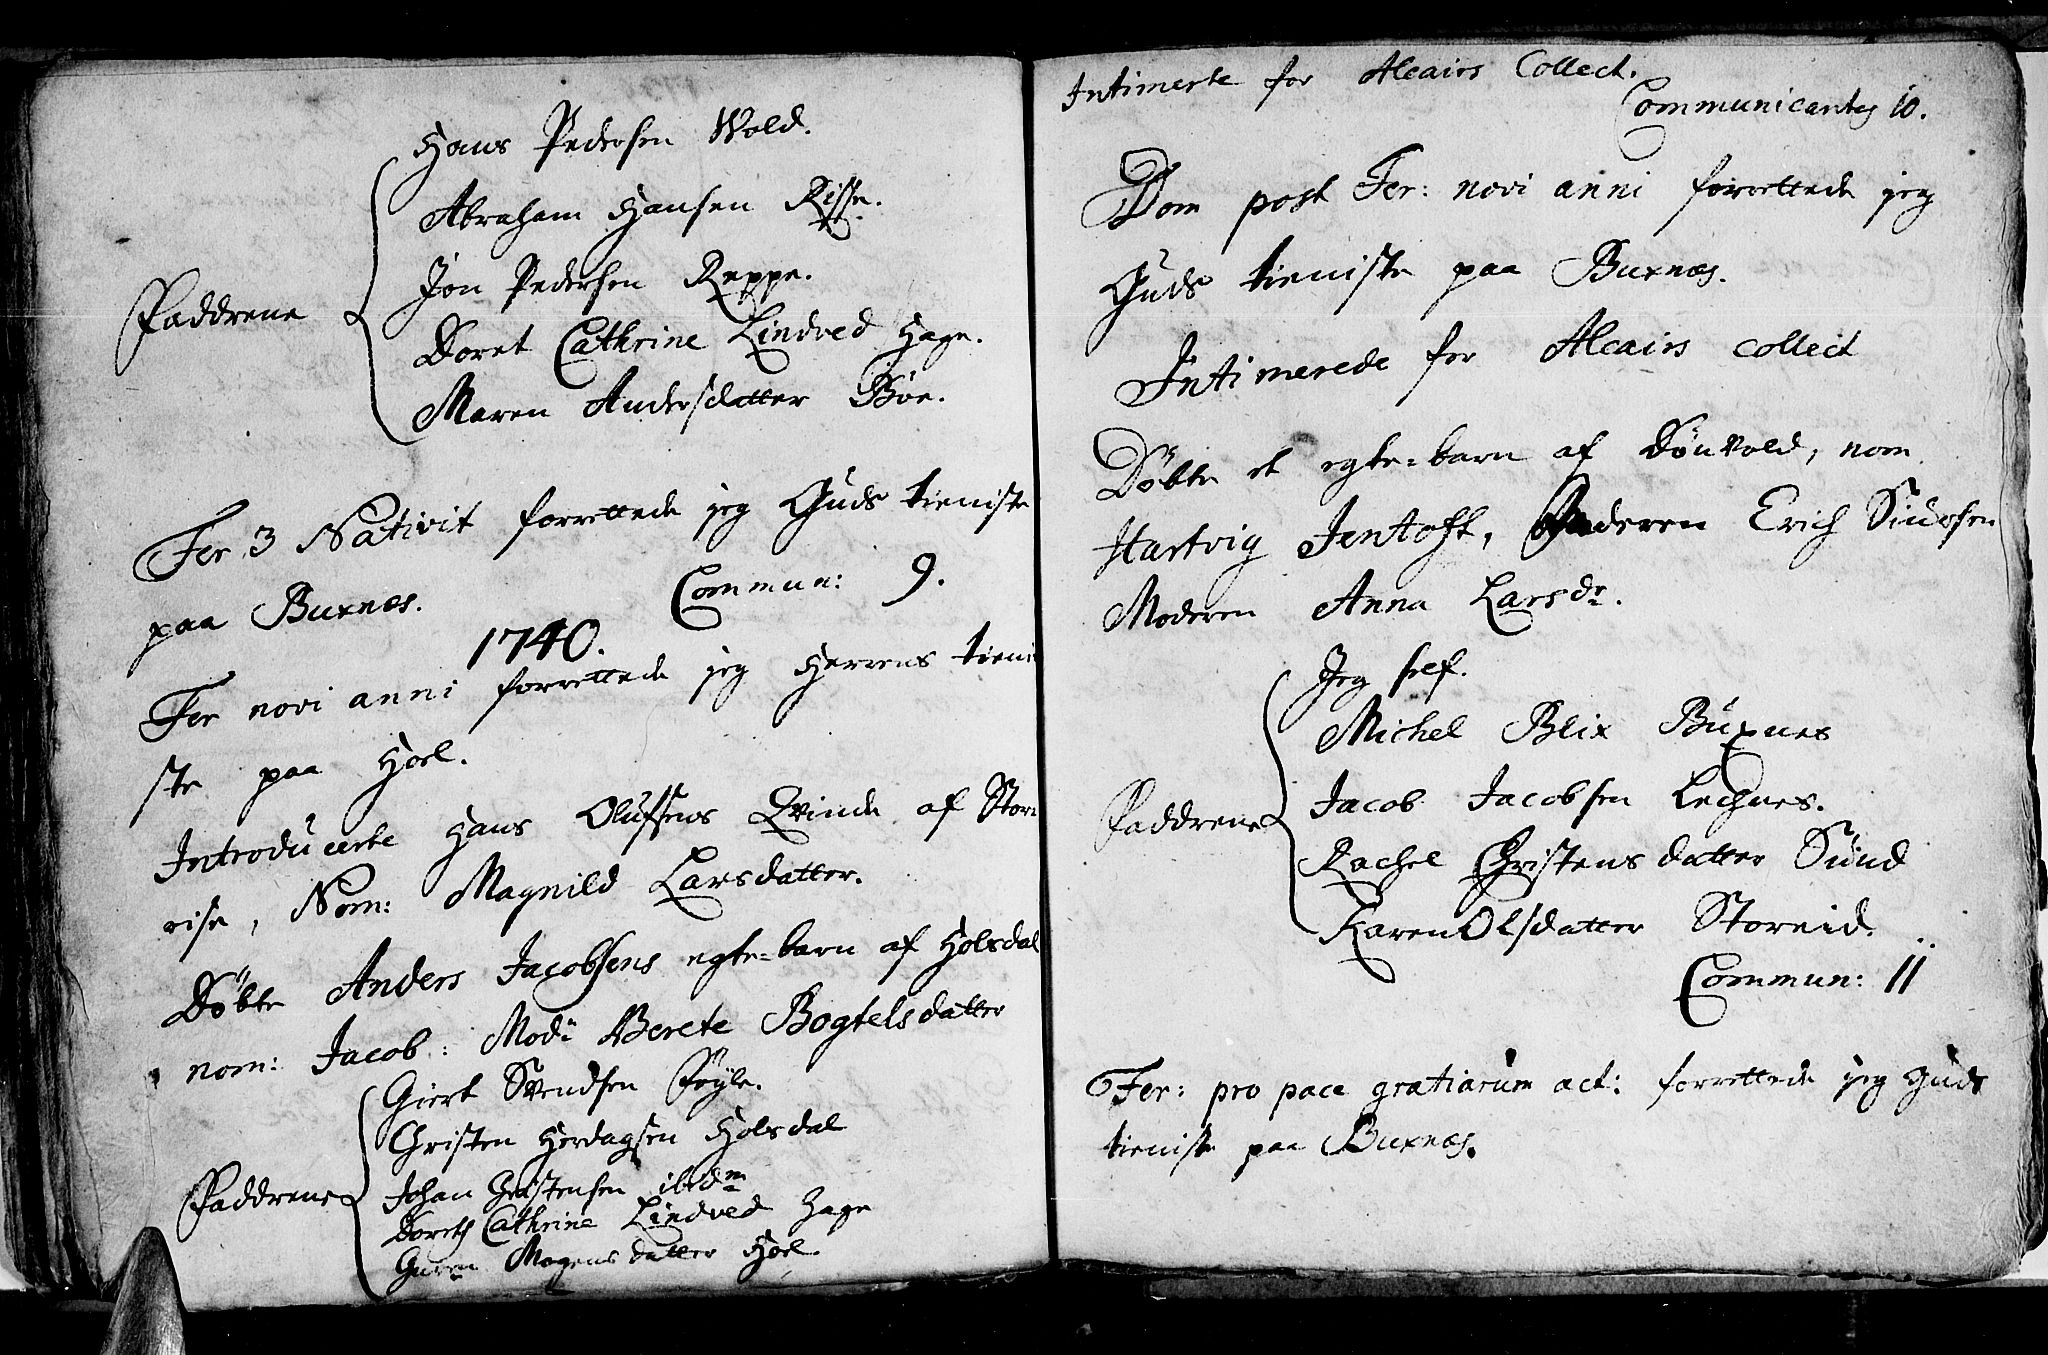 Hans Pedersen Wold.
Abraham Hansen Risse.
Jon Pedersen Reppe.
Faddrene
Doret Cathrine Lindved Hage.
Maren Andersdatter Böe.
Fer 3 Nativit forrettede jeg Guds tieniste
paa Buxnæs. Commun: 9.
1740.
Fer novi anni forrettede jeg Herrens tieni
ste paa Hoel.
Introducerte Hans Olufsens Qvinde af Store
rise, Nom: Magnild Larsdatter.
Döbte Anders Jacobsens egte=barn af Holsdal
nom: Jacob: Mod: Berete Bogtelsdatter
Giert Svendsen Föyle.
Christen Hordagsen Holsdal
Faddrene
Johan Christensen ibidm
Doreth Cathrine Lindved Hage
Guren Mogensdatter Hoel.
Intimerte for Alcairs Collect.
Communicantes 10.
Dom post Fer: novi anni forrettede jeg
Guds tieniste paa Buxnæs.
Intimerede for Alcairs collect
Döbte et egte=barn af Dönvold, nom
Hartvig Jentoft, Faderen Erich Siversen
Moderen Anna Larsdr.
Jeg self.
Michel Blix Büxnes
Faddrene
Jacob Jacobsen Lechnes.
Rachel Christensdatter Sünd
Karen Olsdatter Storeid.
Commun: 11
Fer: pro pace gratiarum act: forrettede jeg Guds
tieniste paa Buxnæs.